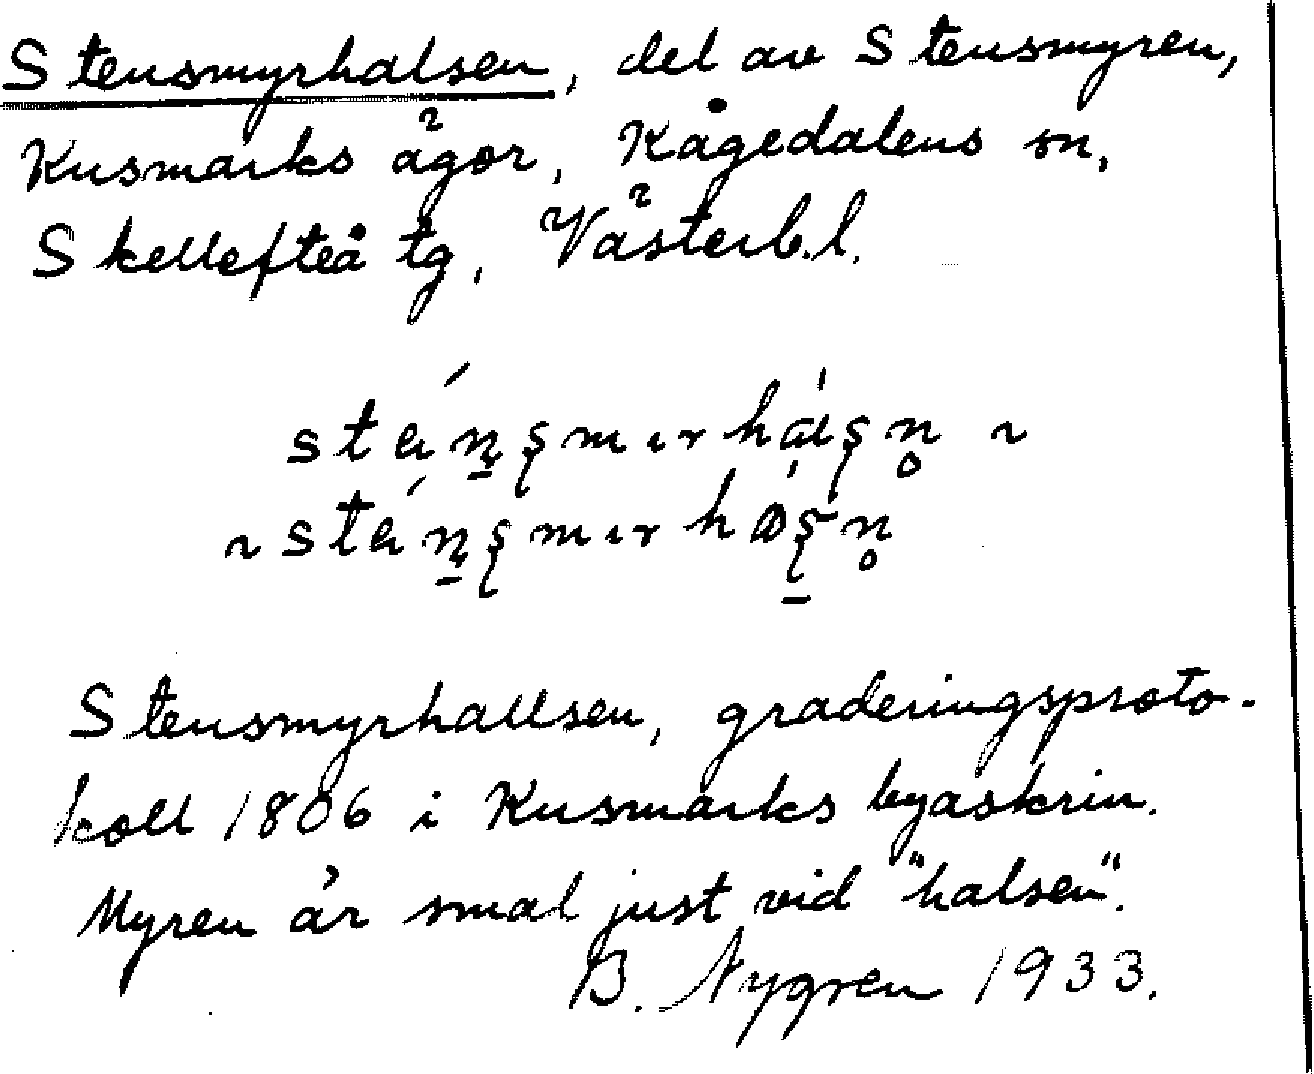 Stensmyrhalsen, del av Stensmyren,
Kusmarks ägor, Kågedalens sn,
Skellefteå tg, Västerb. l.
Stensmyrhallsen, graderingsproto-
koll 1806 i Kusmarks byaskrin.
Myren är smal just vid "halsen".
B. Nygren 1933.